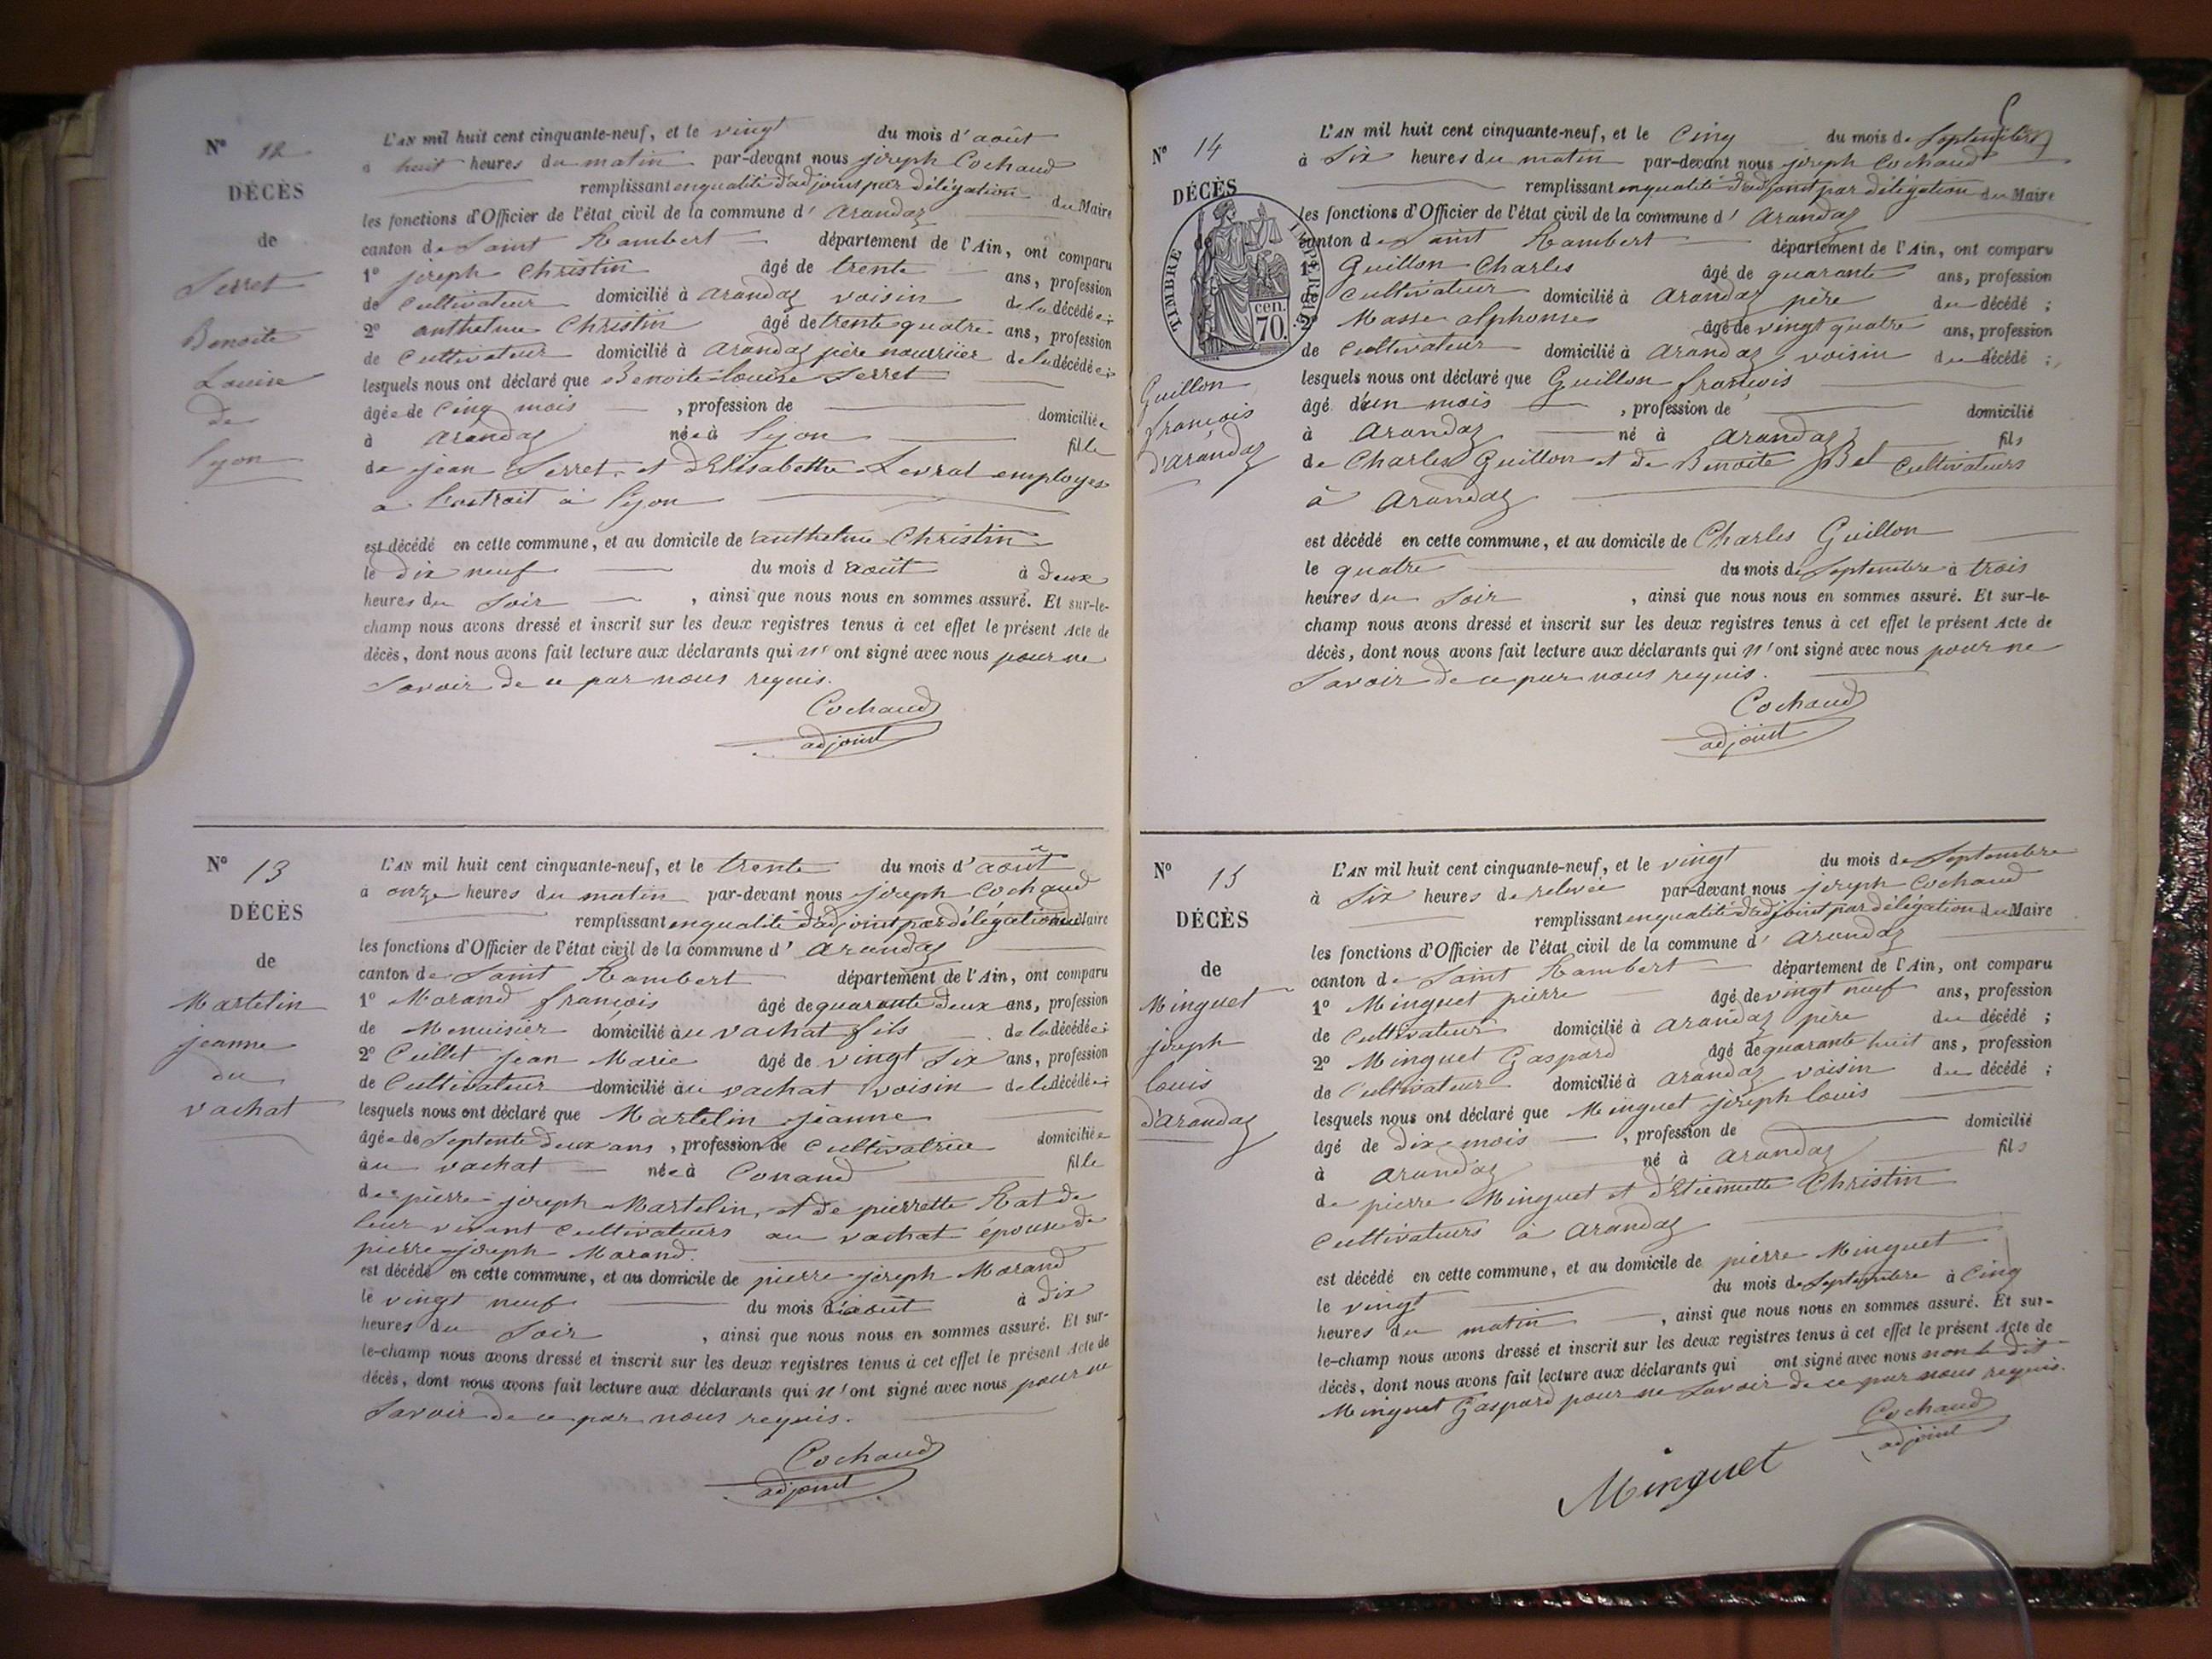 N° 12
DÉCÈS
de
Serret
Benoite
Louise
de
lyon
L'AN mil huit cent cinquante-neuf, et le vingt du mois d'août
à huit heures du matin par-devant nous joseph Cochaud
remplissant en qualité d'adjoint par délégation du Maire
les fonctions d'Officier de l'état civil de la commune d' arandaz
canton de Saint Rambert département de l'Ain, ont comparu
1° joseph Christin âgé de trente ans, profession
de Cultivateur domicilié à arandaz voisin de la décédée;
2° anthelme Christin âgé de trente quatre ans, profession
de Cultivateur domicilié à arandaz père nourricier de la décédée;
lesquels nous ont déclaré que Benoite Louise Serret
âgée de Cinq mois, profession de domiciliée
à arandaz née à lyon fille
de jean Serret, et d'Elisabethe Levrat employes
a à lyon
est décédé en cette commune, et au domicile de anthelme Christin
le dix neuf du mois d août à deux
heures du Soir, ainsi que nous nous en sommes assuré. Et sur-le-
champ nous avons dressé et inscrit sur les deux registres tenus à cet effet le présent Acte de
décès, dont nous avons fait lecture aux déclarants qui n'ont signé avec nous pour ne
Savoir de ce par nous requis.
Cochaud
adjoint
N° 13
DÉCÈS
de
Martelin
jeanne
du
vachat
L'AN mil huit cent cinquante-neuf, et le trente du mois d'août
à onze heures du matin par-devant nous joseph Cochaud
remplissant en qualité d'adjoint par délégation du Maire
les fonctions d'Officier de l'état civil de la commune d' arandaz
canton de Saint Rambert département de l'Ain, ont comparu
1° Morand françois âgé de quarante deux ans, profession
de Menuisier domicilié au vachat fils de la décédée;
2° Cullet jean Marie âgé de vingt Six ans, profession
de Cultivateur domicilié au vachat voisin de la décédée;
lesquels nous ont déclaré que Martelin jeanne
âgée de Septente deux ans, profession de Cultivatrice domiciliée
au vachat née à Conand fille
de pierre joseph Martelin, et de pierrette Rat de
leur vivant Cultivateurs au vachat épouse de
pierre joseph Morand.
est décédé en cette commune, et au domicile de pierre joseph Morand
le vingt neuf du mois d'août à dix
heures du Soir, ainsi que nous nous en sommes assuré. Et sur-
le-champ nous avons dressé et inscrit sur les deux registres tenus à cet effet le présent Acte de
décès, dont nous avons fait lecture aux déclarants qui n'ont signé avec nous pour ne
Savoir de ce par nous requis.
Cochaud
adjoint
N° 14
DÉCÈS
de
TIMBRE IMPERIAL
cen.
70.
Guillon
françois
d'arandaz
L'AN mil huit cent cinquante-neuf, et le Cinq du mois de Septembre
à Six heures du matin par-devant nous joseph Cochaud
remplissant en qualité d'adjoint par délégation du Maire
les fonctions d'Officier de l'état civil de la commune d' arandaz
canton de Saint Rambert département de l'Ain, ont comparu
1° Guillon Charles âgé de quarante ans, profession
de Cultivateur domicilié à arandaz père du décédé;
2° Masse alphonse âgé de vingt quatre ans, profession
de Cultivateur domicilié à arandaz voisin du décédé;
lesquels nous ont déclaré que Guillon françois
âgé d'un mois, profession de domicilié
à arandaz né à arandaz fils
de Charles Guillon et de Benoite Bel Cultivateurs
à arandaz
est décédé en cette commune, et au domicile de Charles Guillon
le quatre du mois de Septembre à trois
heures du Soir, ainsi que nous nous en sommes assuré. Et sur-le-
champ nous avons dressé et inscrit sur les deux registres tenus à cet effet le présent Acte de
décès, dont nous avons fait lecture aux déclarants qui n'ont signé avec nous pour ne
Savoir de ce par nous requis.
Cochaud
adjoint
N° 15
DÉCÈS
de
Minguet
joseph
louis
d'arandaz
L'AN mil huit cent cinquante-neuf, et le vingt du mois de Septembre
à Six heures de relevée par-devant nous joseph Cochaud
remplissant en qualité d'adjoint par délégation du Maire
les fonctions d'Officier de l'état civil de la commune d' arandaz
canton de Saint Rambert département de l'Ain, ont comparu
1° Minguet pierre âgé de vingt neuf ans, profession
de Cultivateur domicilié à arandaz père du décédé;
2° Minguet Gaspard âgé de quarante huit ans, profession
de Cultivateur domicilié à arandaz voisin du décédé;
lesquels nous ont déclaré que Minguet joseph louis
âgé de dix mois, profession de domicilié
à arandaz né à arandaz fils
de pierre Minguet et d'Etiennette Christin
Cultivateurs à arandaz
est décédé en cette commune, et au domicile de pierre Minguet
le vingt du mois de Septembre à Cinq
heures du matin, ainsi que nous nous en sommes assuré. Et sur-
le-champ nous avons dressé et inscrit sur les deux registres tenus à cet effet le présent Acte de
décès, dont nous avons fait lecture aux déclarants qui ont signé avec nous non le dit
Minguet Gaspard pour ne Savoir de ce par nous requis.
Cochaud
adjoint
Minguet